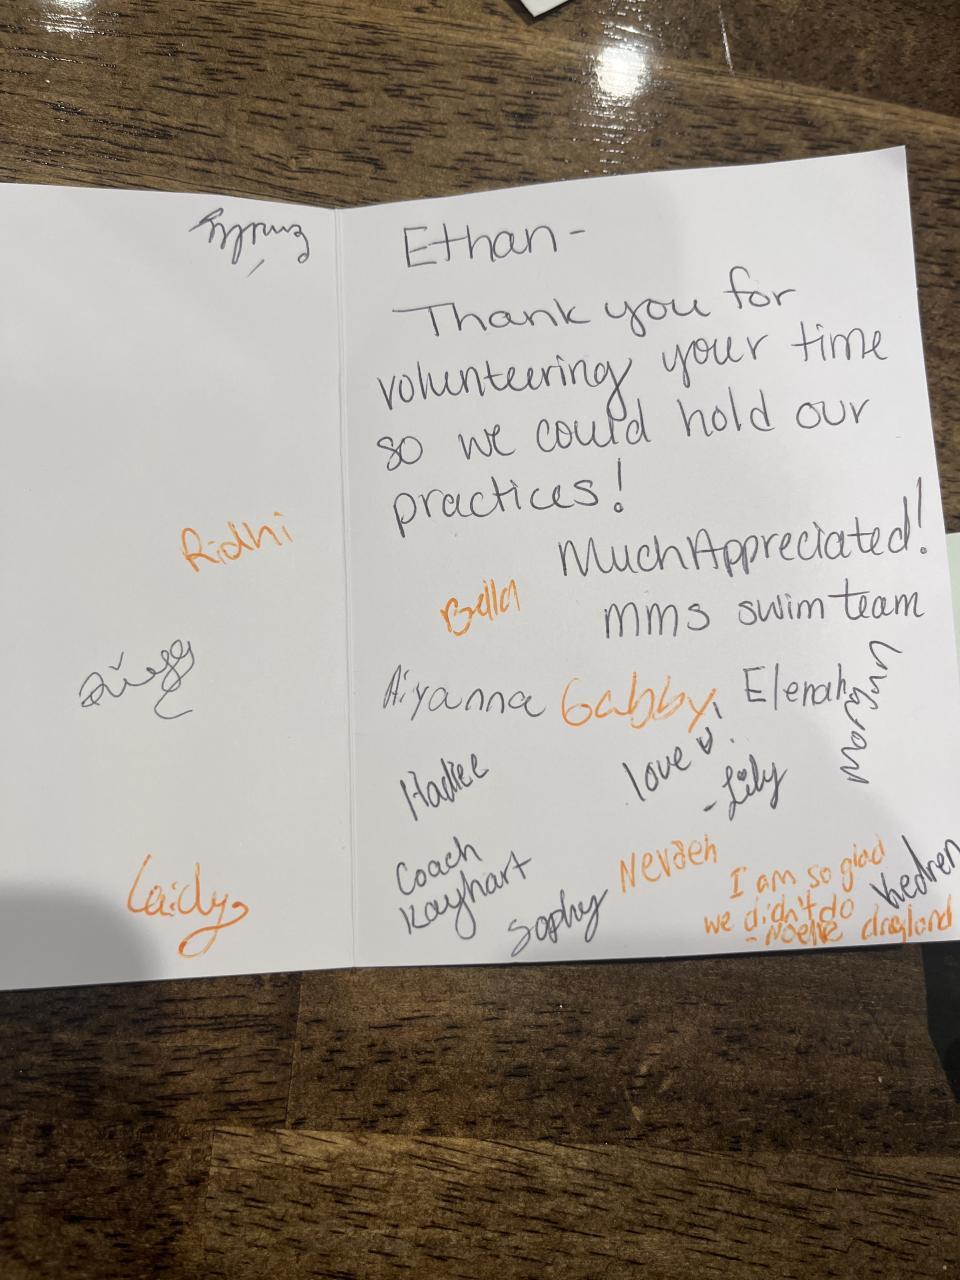 Ethan-
Thank you for
volunteering your time
so we could hold our
practices!
Much Appreciated!
mms swim team
Ridhi
Bella
Aiyanna
Gabby
Elenah
Hadlee
love
-Lily
Coach
Kayhart
Sophy
Nevaeh
I am so glad
we didn't do
dryland
-Noelle
Kedren